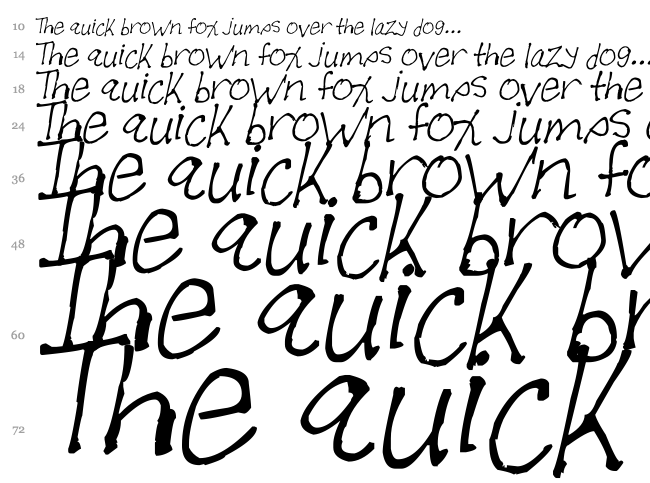 10 The quick brown fox jumps over the lazy dog...
14 The quick brown fox jumps over the lazy dog...
18 The quick brown fox jumps over the
24 The quick brown fox jumps
36 The quick brown fo
48 The quick brov
60 The quick br
72 The quick